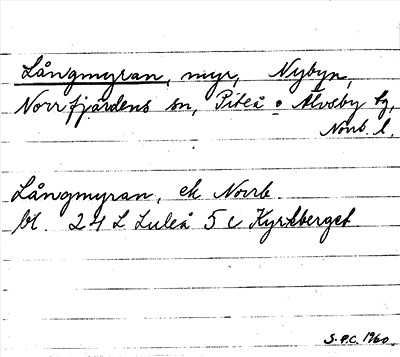 Långmyran, myr, Nybyn,
Norrfjärdens sn, Piteå o Älvsby tg,
Norrb. l.
Långmyran, ek Norrb.
bl. 24 L Luleå 5 c Kyrkberget
S.P.C. 1960.